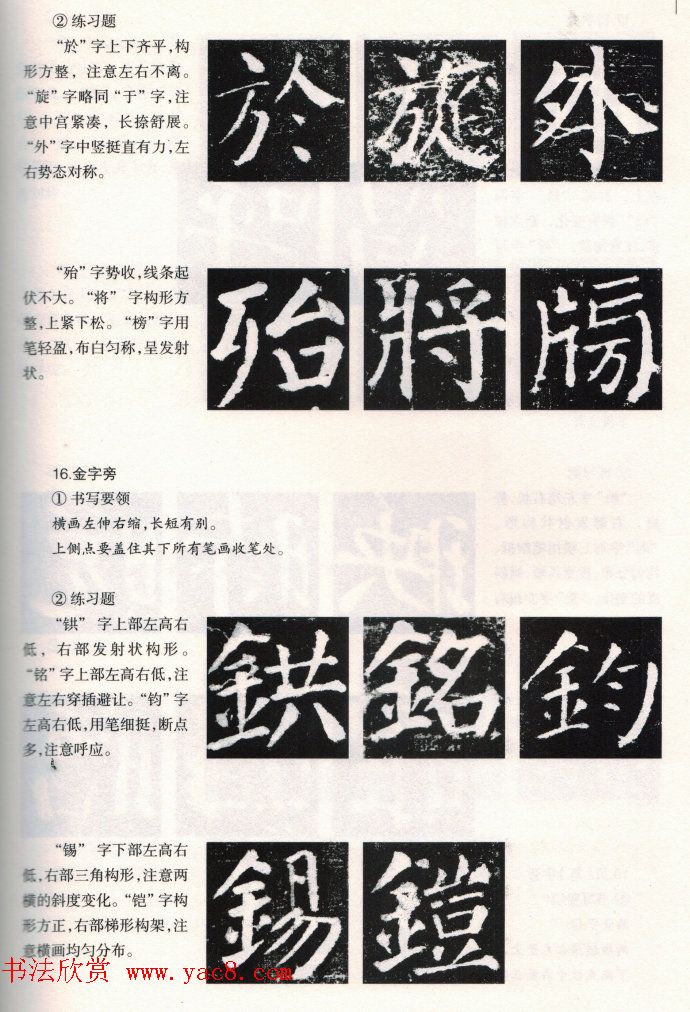 ② 练习题
“於”字上下齐平,构
形方整，注意左右不离。
“旋”字略同“于”字,注
意中宫紧凑，长捺舒展。
“外”字中竖挺直有力,左
右势态对称。
於 旋 外
“殆”字势收,线条起
伏不大。“将”字构形方
整,上紧下松。“榜”字用
笔轻盈,布白匀称,呈发射
状。
殆 將 牓
16.金字旁
① 书写要领
横画左伸右缩,长短有别。
上侧点要盖住其下所有笔画收笔处。
② 练习题
“㤨”字上部左高右
低，右部发射状构形。
“铭”字上部左高右低,注
意左右穿插避让。“钧”字
左高右低,用笔细挺,断点
多,注意呼应。
鉷 銘 鈞
“锡”字下部左高右
低,右部三角构形,注意两
横的斜度变化。“铠”字构
形方正,右部梯形构架,注
意横画均匀分布。
錫 鎧
书法欣赏 www.yac8.com